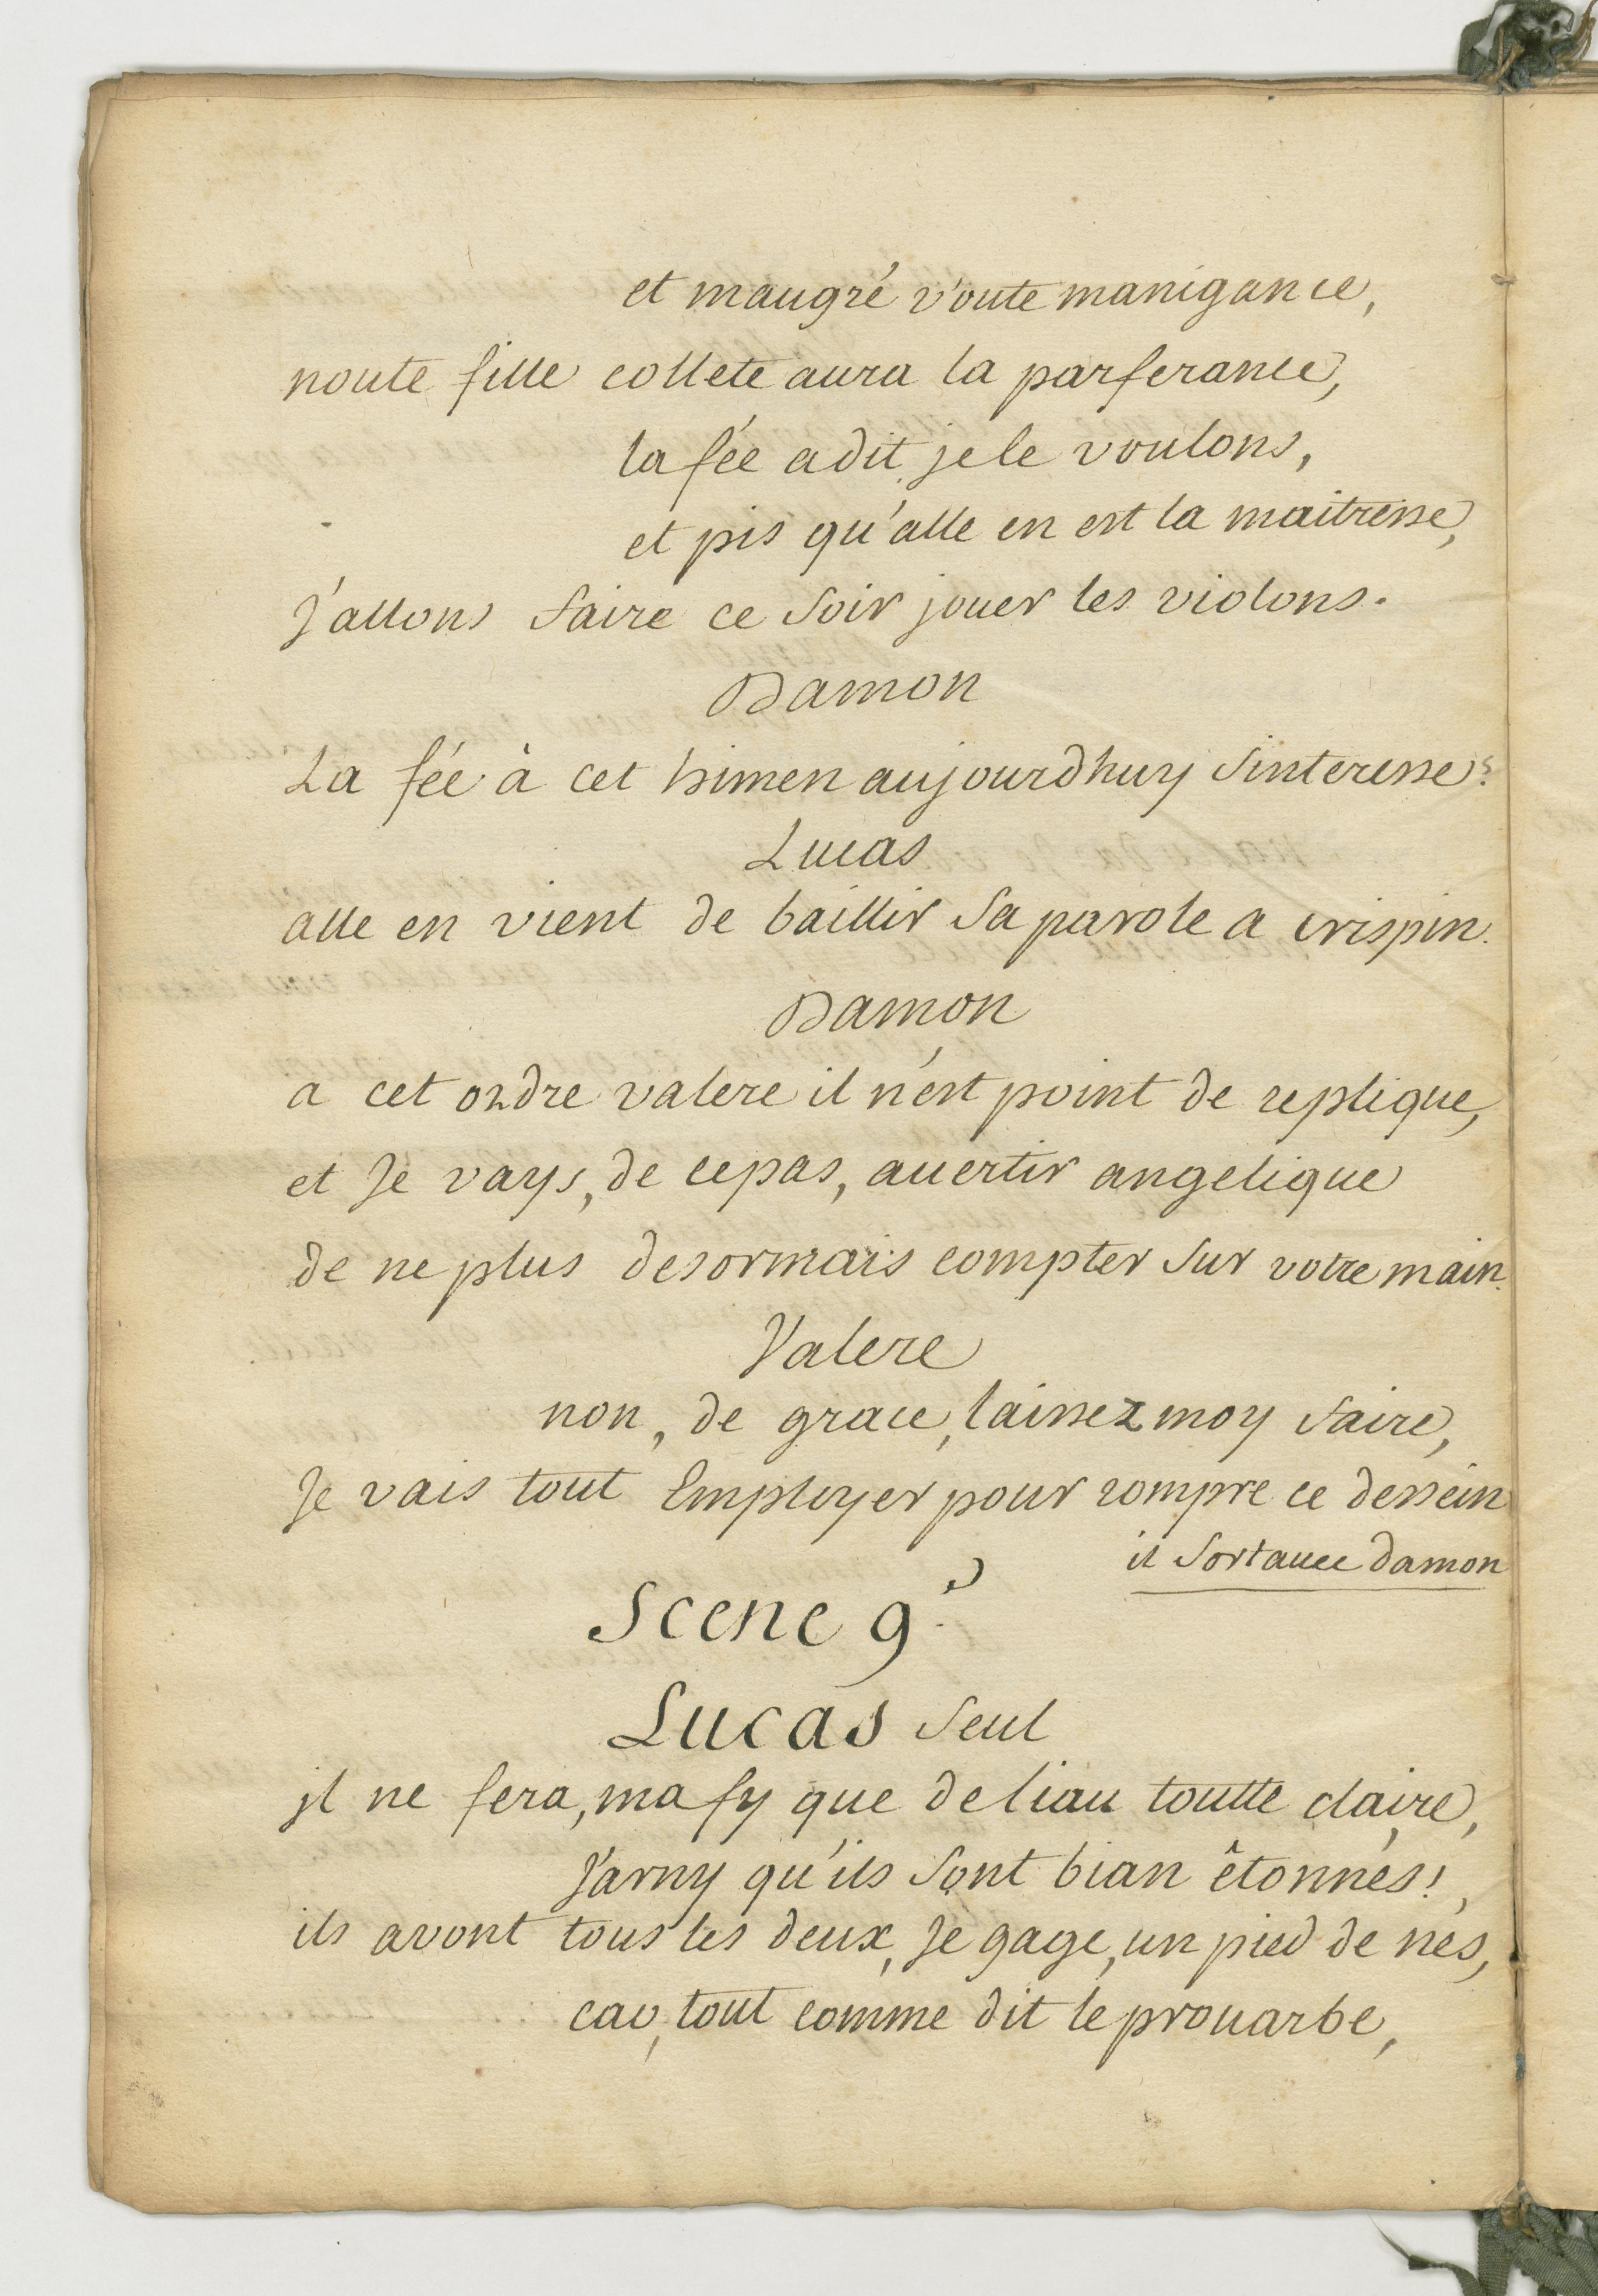 et maugré v'oute manigance,
noute fille collete aura la parferance,
la fée a dit je le voulons,
et pis qu'alle en est la maitresse,
J'allons faire ce soir jouer les violons.
Damon
La fée à cet himen aujourdhuy s'interesse?
Lucas
alle en vient de baillir sa parole a crispin.
Damon
a cet ordre valere il n'est point de replique,
et Je vays, de ce pas, auertir angelique
de ne plus desormais compter sur votre main.
Valere
non, de grace, laissez moy faire,
Je vais tout Employer pour rompre ce dessein
il sort auec damon
Scene 9.e
Lucas seul
jl ne fera, ma fy que de liau toutte claire,
J'arny qu'ils sont bian êtonnés!
ils avont tous les deux, Je gage, un pied de nés,
car, tout comme dit le prouarbe,